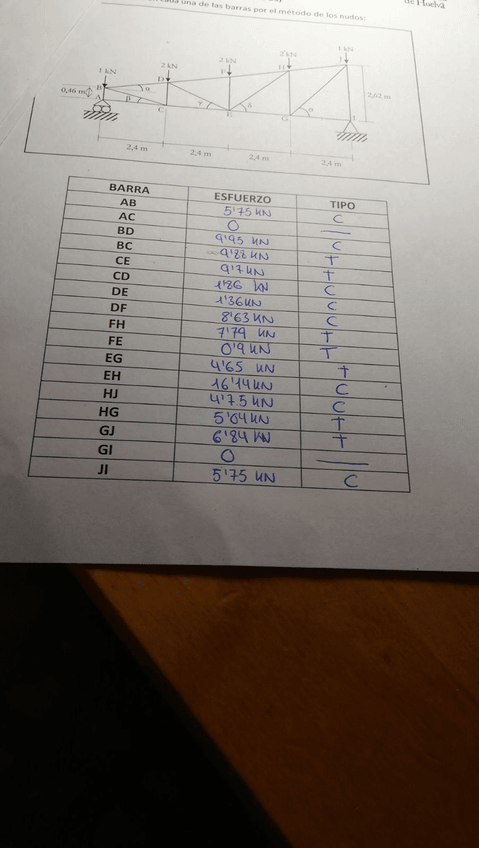 cada una de las barras por el método de los nudos:
de Huelva
1 kN 2 kN 2 kN 2 kN 1 kN
0,46 m B D F H J
A C E G I
α β γ δ
2,62 m
2,4 m 2,4 m 2,4 m 2,4 m
BARRA ESFUERZO TIPO
AB 5'75 KN C
AC 0 —
BD 9'95 KN C
BC 9'88 KN T
CE 9'7 KN T
CD 1'86 KN C
DE 1'36 KN C
DF 8'63 KN C
FH 7'79 KN T
FE 0'9 KN T
EG 4'65 KN T
EH 16'14 KN C
HJ 4'75 KN C
HG 5'64 KN T
GJ 6'84 KN T
GI 0 —
JI 5'75 KN C